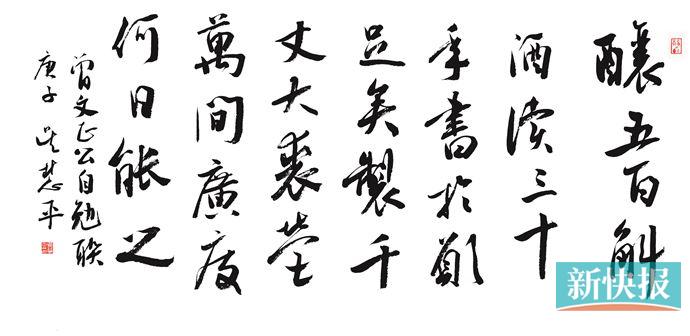 釀五百斛
酒讀三十
車書於願
足矣製千
丈大裘營
萬間廣廈
何日能之
曾文正公自勉聯
庚子 吴慧平
新快报